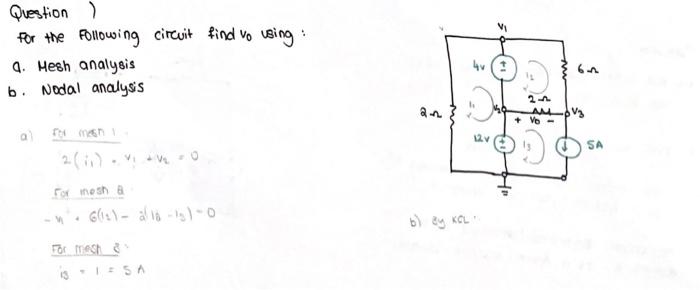 Question )
For the Following circuit find Vo using :
a. Mesh analysis
b. Nodal analysis
a) For mesh 1 :
2(i1) + V1 + V2 = 0
For mesh 2
6(i2) - 2(i3 - i2) = 0
For mesh 3 :
i3 = 5A
V1
4v
i2
6Ω
2Ω
i1
V2
V3
2Ω
+ Vo -
12v
i3
5A
b) By KCL :